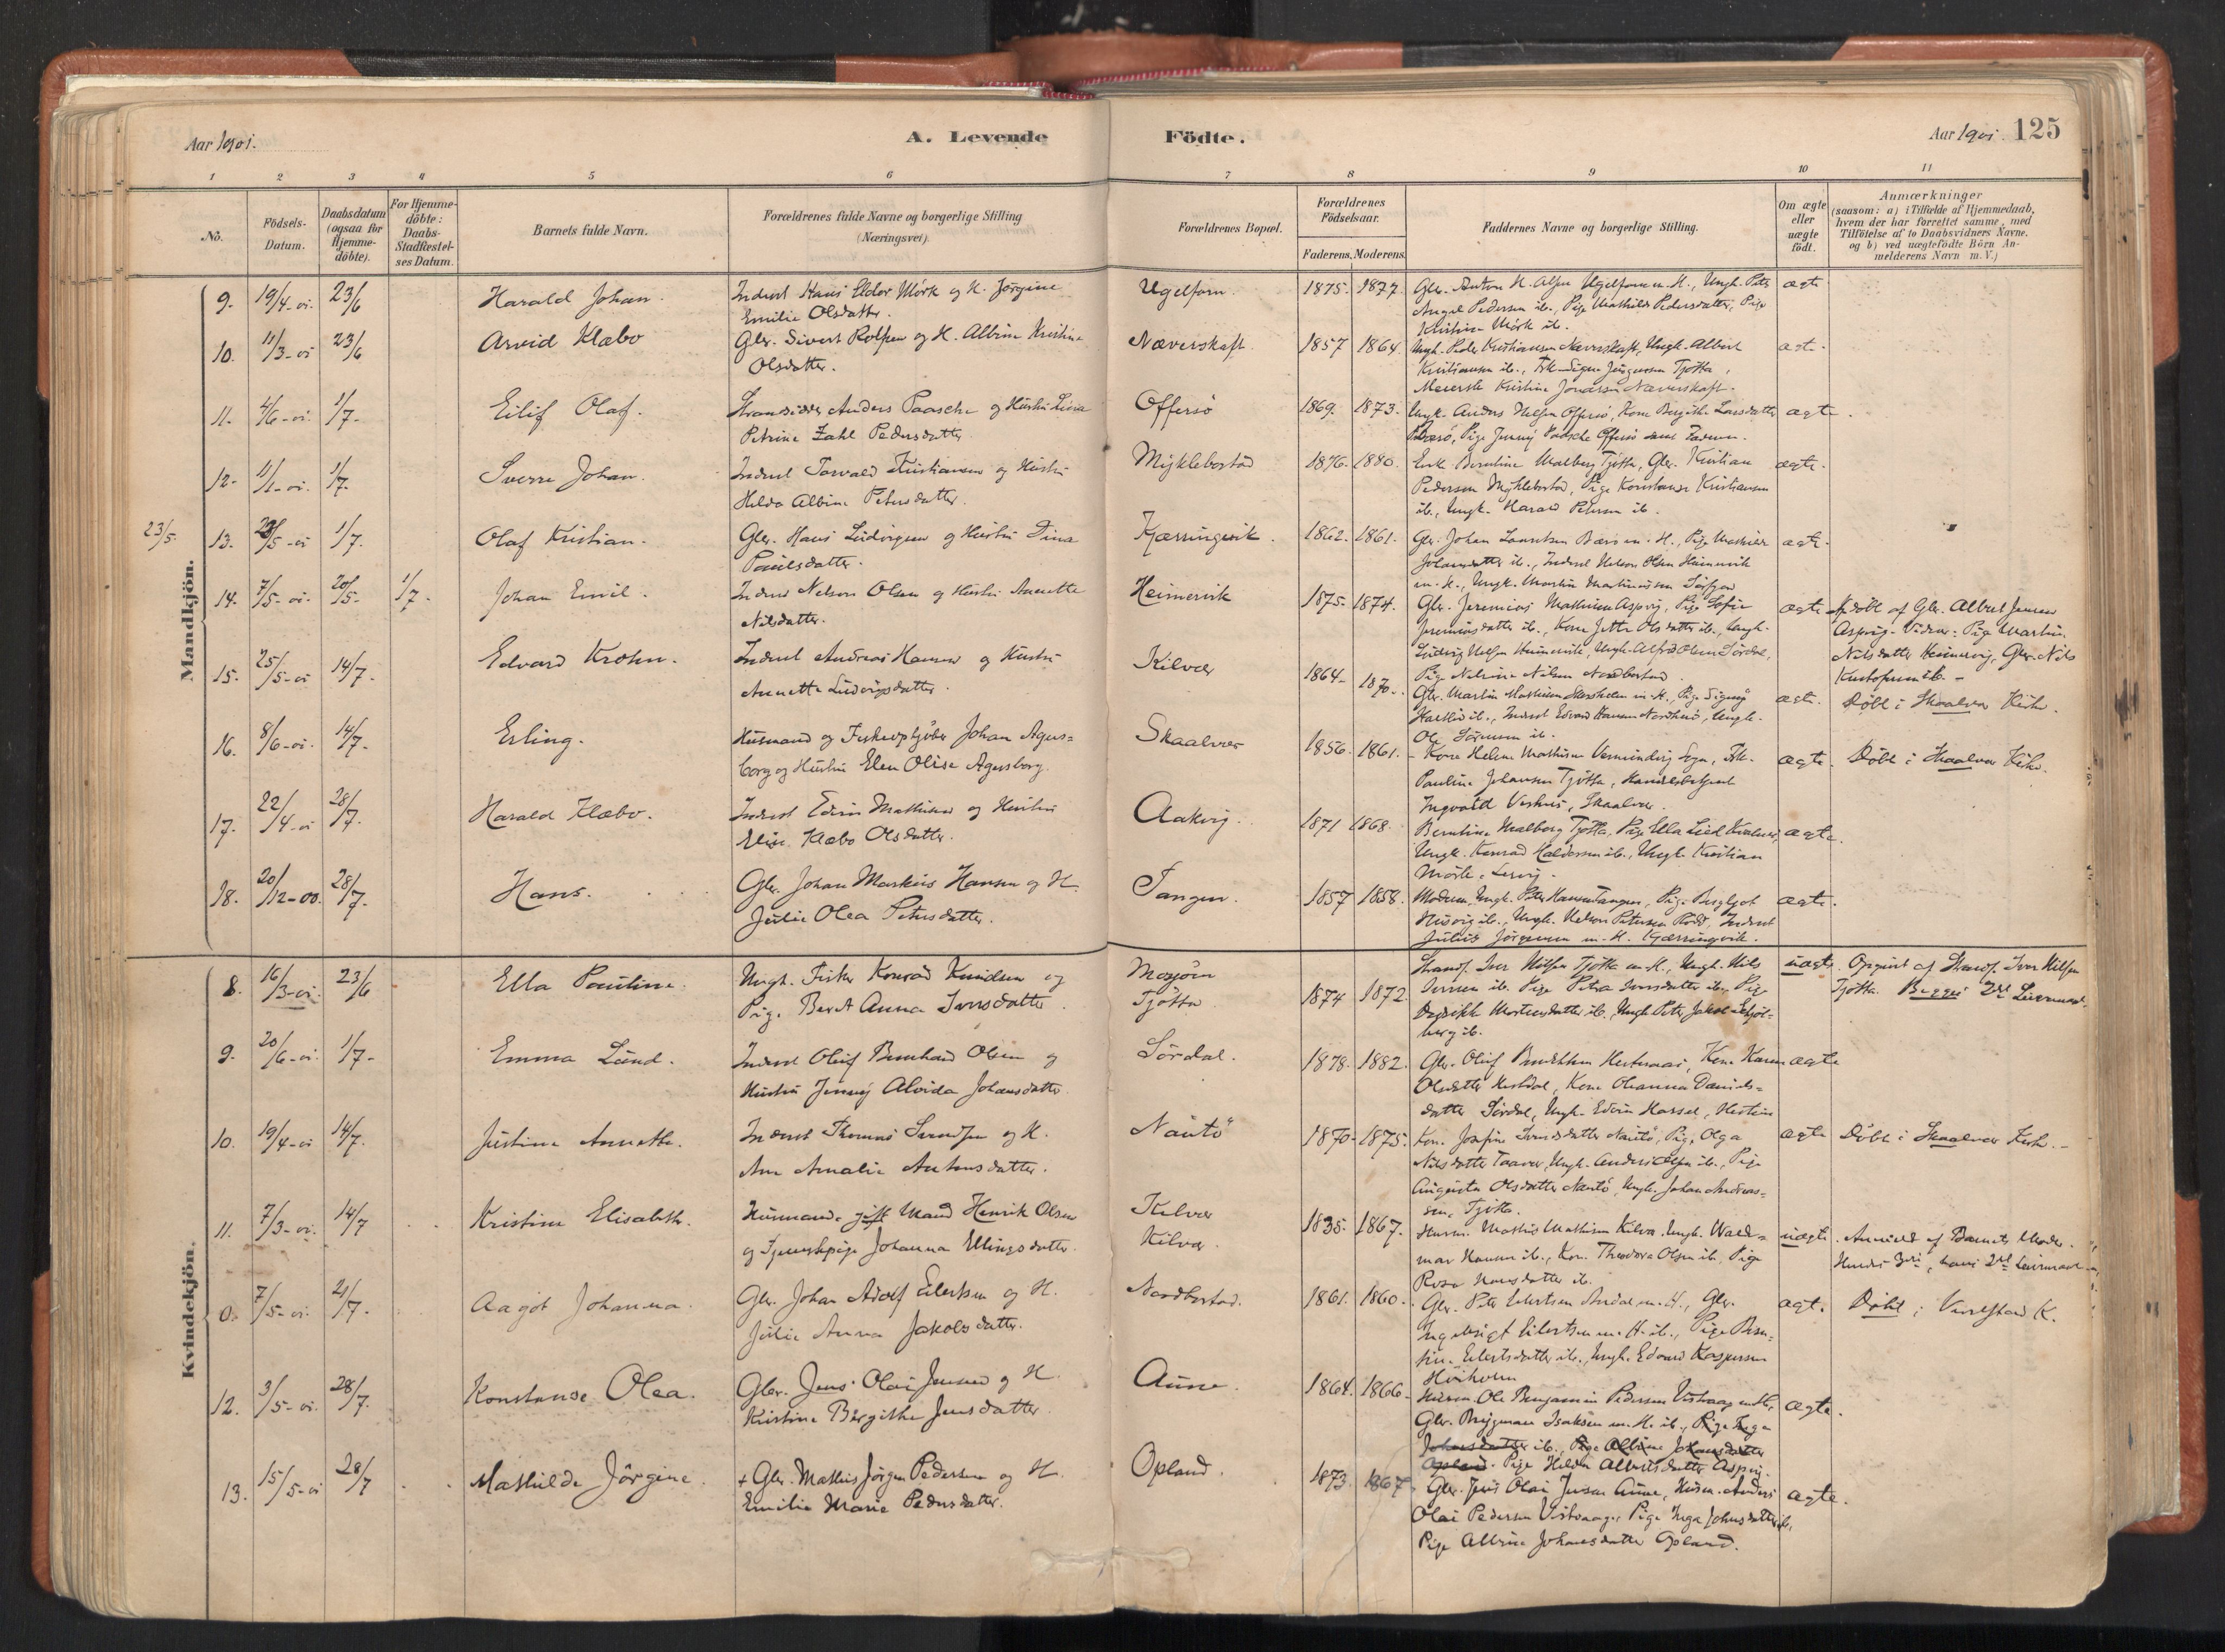 Aar 1901.
A. Levende
Födte.
Aar 1901. 125
1 2 3 4 5 6 7 8 9 10 11
No.
Födsels-Datum.
Daabsdatum (ogsaa for Hjemme-döbte).
For Hjemme-döbte: Daabs-Stadfæstel-ses Datum.
Barnets fulde Navn.
Forældrenes fulde Navne og borgerlige Stilling (Næringsvei).
Forældrenes Bopæl.
Forældrenes Födselsaar.
Faderens. Moderens.
Faddernes Navne og borgerlige Stilling.
Om ægte eller uægte födt.
Anmærkninger
(saasom: a) i Tilfælde af Hjemmedaab, hvem der har forrettet samme, med Tilföielse af to Daabsvidners Navne, og b) ved uægtefödte Börn An-melderens Navn m. V.)
Mandkjön.
9. 19/4-01. 23/6 Harald Johan. Inderst Hans Eldor Mörk og H. Jörgine
Emilie Olsdatter.
Ugelforn. 1875. 1877. ægte
Kristine Mörk ib.
10. 11/3-01 23/6 Arvid Klæbo Gbr. Sivert Rolfsen og H. Albine Kristine
Olsdatter.
Næverskaft. 1857 1864. Ungk. Peder Kristiansen Næverskaft, Ungk. Albert
Kristiansen ib., Frk. Signe Jörgensen Tjötta,
Meierske Kristine Jonassen Næverskaft.
11. 4/6-01. 1/7- Eilif Olaf. Strandsidder Anders Paasche og Hustru Lina
Petrine Zahl Pedersdatter.
Offersö 1869. 1873. Ungk. Anders Nielsen Offersö, Kone Birgithe Larsdatter ægte.
Pige Jenny Paasche Offersö samt Faderen.
12. 11/1-01. 1/7. Sverre Johan. Inderst Torvald Kristiansen og Hustru
Hilda Albine Petersdatter.
Myklebostad 1876. 1880. Enke Berntine Walberg Tjötta, Gbr. Kristian ægte.
Pedersen Myklebostad, Pige Konstanse Kristiansen
ib., Ungk. Harald Petersen ib.
23/5. 13. 23/5-01 1/7. Olaf Kristian. Gbr. Hans Ludvigsen og Hustru Dina
Paulsdatter.
Kjærringvik. 1862. 1861. Gbr. Johan Lauritsen m. H., Pige Mathilde ægte.
Johansdatter ib., Inderst Nelson Olsen Heimervik
m. H., Ungk. Martin Martinussen
14. 7/5-01. 20/5. 1/7. Johan Emil. Inderst Nelson Olsen og Hustru Annette
Nilsdatter.
Heimervik 1875. 1874. Gbr. Jeremias Mathisen Aspvig, Pige Sofie ægte Hjdöbt af Gbr. Albert Jensen
Jeremiasdatter ib., Kone Jette Olsdatter ib., Ungk. Aspvig. Vidner: Pige Martine
Ludvig Nilsen Heimervik, Ungk. Alfred Olsen Sördal, Nilsdatter Heimervig, Gbr. Nils
Pige Nilsine Nilsen Nordbostad. Kristofersen ib. -
15. 25/5-01 14/7. Edvard Krohn. Inderst Andreas Hansen og Hustru
Annette Ludvigsdatter.
Kilvær 1864- 1870. ægte. Döbt i Skaalvær Kirke.
Ole Sörensen ib.
16. 8/6-01. 14/7. Erling. Husmand og Fiskeopkjöber Johan Agers=
borg og Hustru Elen Olise Agersborg.
Skaalvær 1856. 1861. - Kone Helene Mathisen Vevelstad Sogn, Frk. ægte. Döbt i Skaalvær Kirke.
Pauline Johansen Tjötta, Handelsbetjent
Ingvald Skaalvær.
17. 22/4-01 28/7. Harald Klæbo. Inderst Edvin Mathisen og Hustru
Elise Klæbo Olsdatter.
Aakvig. 1871 1868. Berntine Walberg Tjötta, Pige Ella ægte.
Ungk. Konrad Haldorsen ib., Ungk. Kristian
Mörk
18. 20/12-00. 28/7. Hans. Gbr. Johan Markus Hansen og H.
Julie Olea Petersdatter.
Tangen. 1857 1858. Moderen, Ungk. Peter Hansen Tangen, Pige Bergljot ægte.
Husvig ib., Ungk. Nelson Petersen Rödö, Inderst
Julius Jörgensen m. H. Kjærringvik.
Kvindekjön.
8. 16/3-01. 23/6 Ella Pauline. Ungk. Fisker Konrad Knudsen og
Pige Beret Anna Iversdatter.
Mosjöen
Tjötta 1874 1872. Strands. Iver Nilsen Tjötta m. H., Ungk. Nils uægte. Opgivet af Strands. Iver Nilsen
Iversen ib. Pige Petra Iversdatter ib., Pige Tjötta. Begges 2det Leiermaal.
9. 20/6-01. 1/7- Emma Lund. Inderst Oluf Bernhard Olsen og
Hustru Jenny Alvida Johansdatter.
Sördal. 1878. 1882. ægte
Olsdatter Kone Oleanna Daniels=
datter Sördal, Ungk. Edvin
10. 19/4-01 14/7. Justine Annette. Inderst Thomas og H.
Ane Amalie Antonsdatter.
Nautö 1870. 1875. Kone Josefine Iversdatter Nautö, Pige Olga ægte Döbt i Skaalvær Kirke.-
Nilsdatter Ungk. Anders Olsen ib., Pige
Augusta Olsdatter Nautö, Ungk. Johan Andreas=
sen, Tjötta.
11. 7/3-01. 14/7 Kristine Elisabeth. Husmand gift Mand Henrik Olsen
og Tjenestepige Johanna Ellingsdatter.
Kilvær
Kilvær. 1835. 1867. Husm. Mathis Mathisen Kilvær, Ungk. Walde= uægte. Anmeldt af Barnets Moder.
mar Hansen ib., Kone Theodora Olsen ib., Pige Hendes 3die, hans 2det Leiermaal
Rosa Hansdatter ib.
0. 7/5-01. 21/7. Aagot Johanna. Gbr. Johan Adolf Eilertsen og H.
Julie Anna Jakobsdatter.
Nordbostad. 1861. 1860. Gbr. Peter Eilertsen m. H., Gbr. ægte. Döbt i Vevelstad K.
Ingebrigt Eilertsen m. H. ib., Pige Bern=
tine Eilertsdatter ib., Ungk. Edvard Kaspersen
12. 3/5-01. 28/7. Konstanse Olea. Gbr. Jens Olai Jensen og H.
Kristine Birgithe Jensdatter.
Aune. 1864. 1866. Husm. Ole Benjamin Pedersen Vistvaag m. H., ægte.
Gbr. Brygman Isaksen m. H. ib., Pige Inga
Johansdatter ib., Pige Albine Johansdatter
Opland. Pige Hilda Albertsdatter Aspvig.
13. 15/5-01 28/7 Mathilde Jörgine. + Gbr. Mathis Jörgen Pedersen og H.
Emilie Marie Pedersdatter.
Opland. 1873. 1867. Gbr. Jens Olai Jensen Aune, Husm. Anders ægte.
Olai Pedersen Vistvaag, Pige Inga Johansdatter ib.,
Pige Albine Johansdatter Opland.